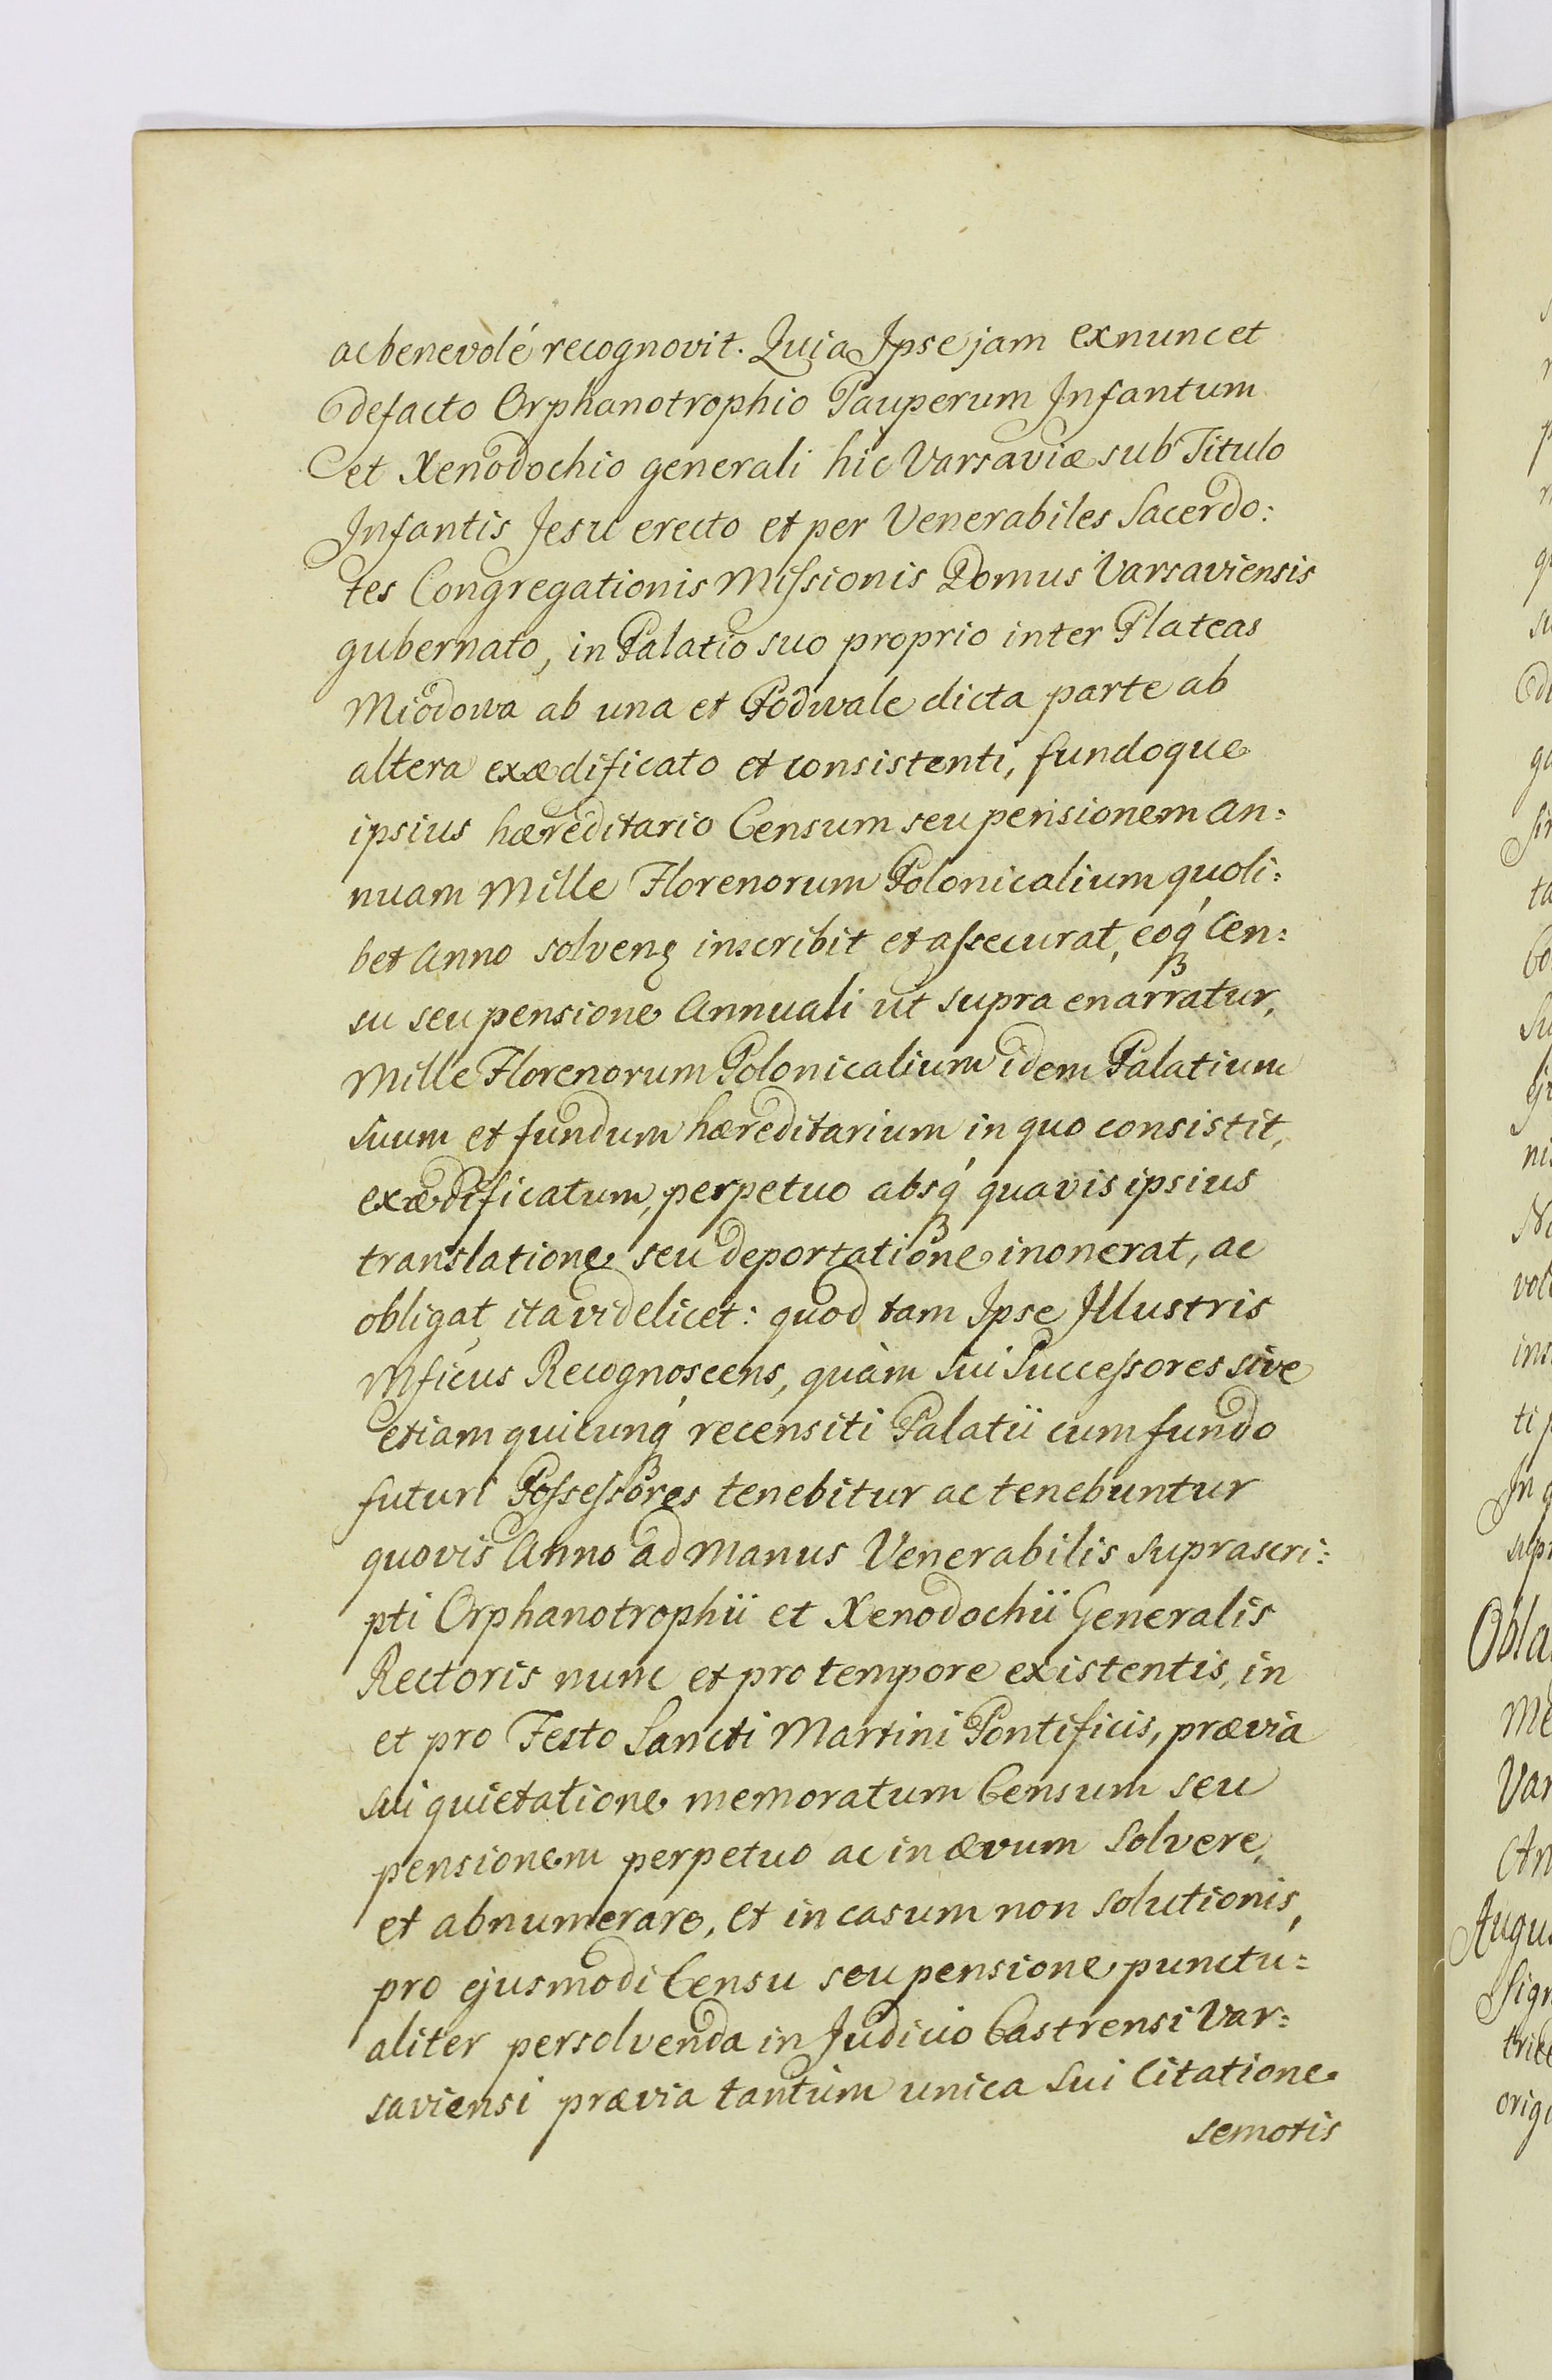 ac benevolé recognovit. Quia Ipse jam exnunc et
defacto Orphanotrophio Pauperum Infantum
et Xenodochio generali hic Varsaviæ sub Titulo
Infantis Jesu erecto et per Venerabiles Sacerdo:
tes Congregationis Missionis Domus Varsaviensis
gubernato, in Palatio suo proprio inter Plateas
Miodowa ab una et Podwale dicta parte ab
altera exædificato et consistenti, fundoque
ipsius hæreditario Censum seu pensionem an:
nuam Mille Florenorum Polonicalium quoli:
bet Anno solven inscribit et assecurat, eoq́ Cen:
su seu pensione Annuali ut supra enarratur,
Mille Florenorum Polonicalium idem Palatium
suum et fundum hæreditarium in quo consistit,
exædificatum, perpetuo absq́ quavis ipsius
translatione seu deportatione inonerat, ac
obligat, ita videlicet: quod tam Ipse Illustris
Mficus Recognoscens, quàm sui Successores sive
etiam quicunq́ recensiti Palatii cum fundo
futuri Possessores tenebitur ac tenebuntur
quovis Anno ad manus Venerabilis suprascri:
pti Orphanotrophii et Xenodochii Generalis
Rectoris nunc et pro tempore existentis, in
et pro Festo Sancti Martini Pontificis, prævia
sui quietatione memoratum Censum seu
pensionem perpetuo ac in ævum solvere,
et abnumerare, et in casum non solutionis,
pro ejusmodi Censu seu pensione punctu:
aliter persolvenda in Judicio Castrensi Var:
saviensi prævia tantùm unica sui Citatione
semotis